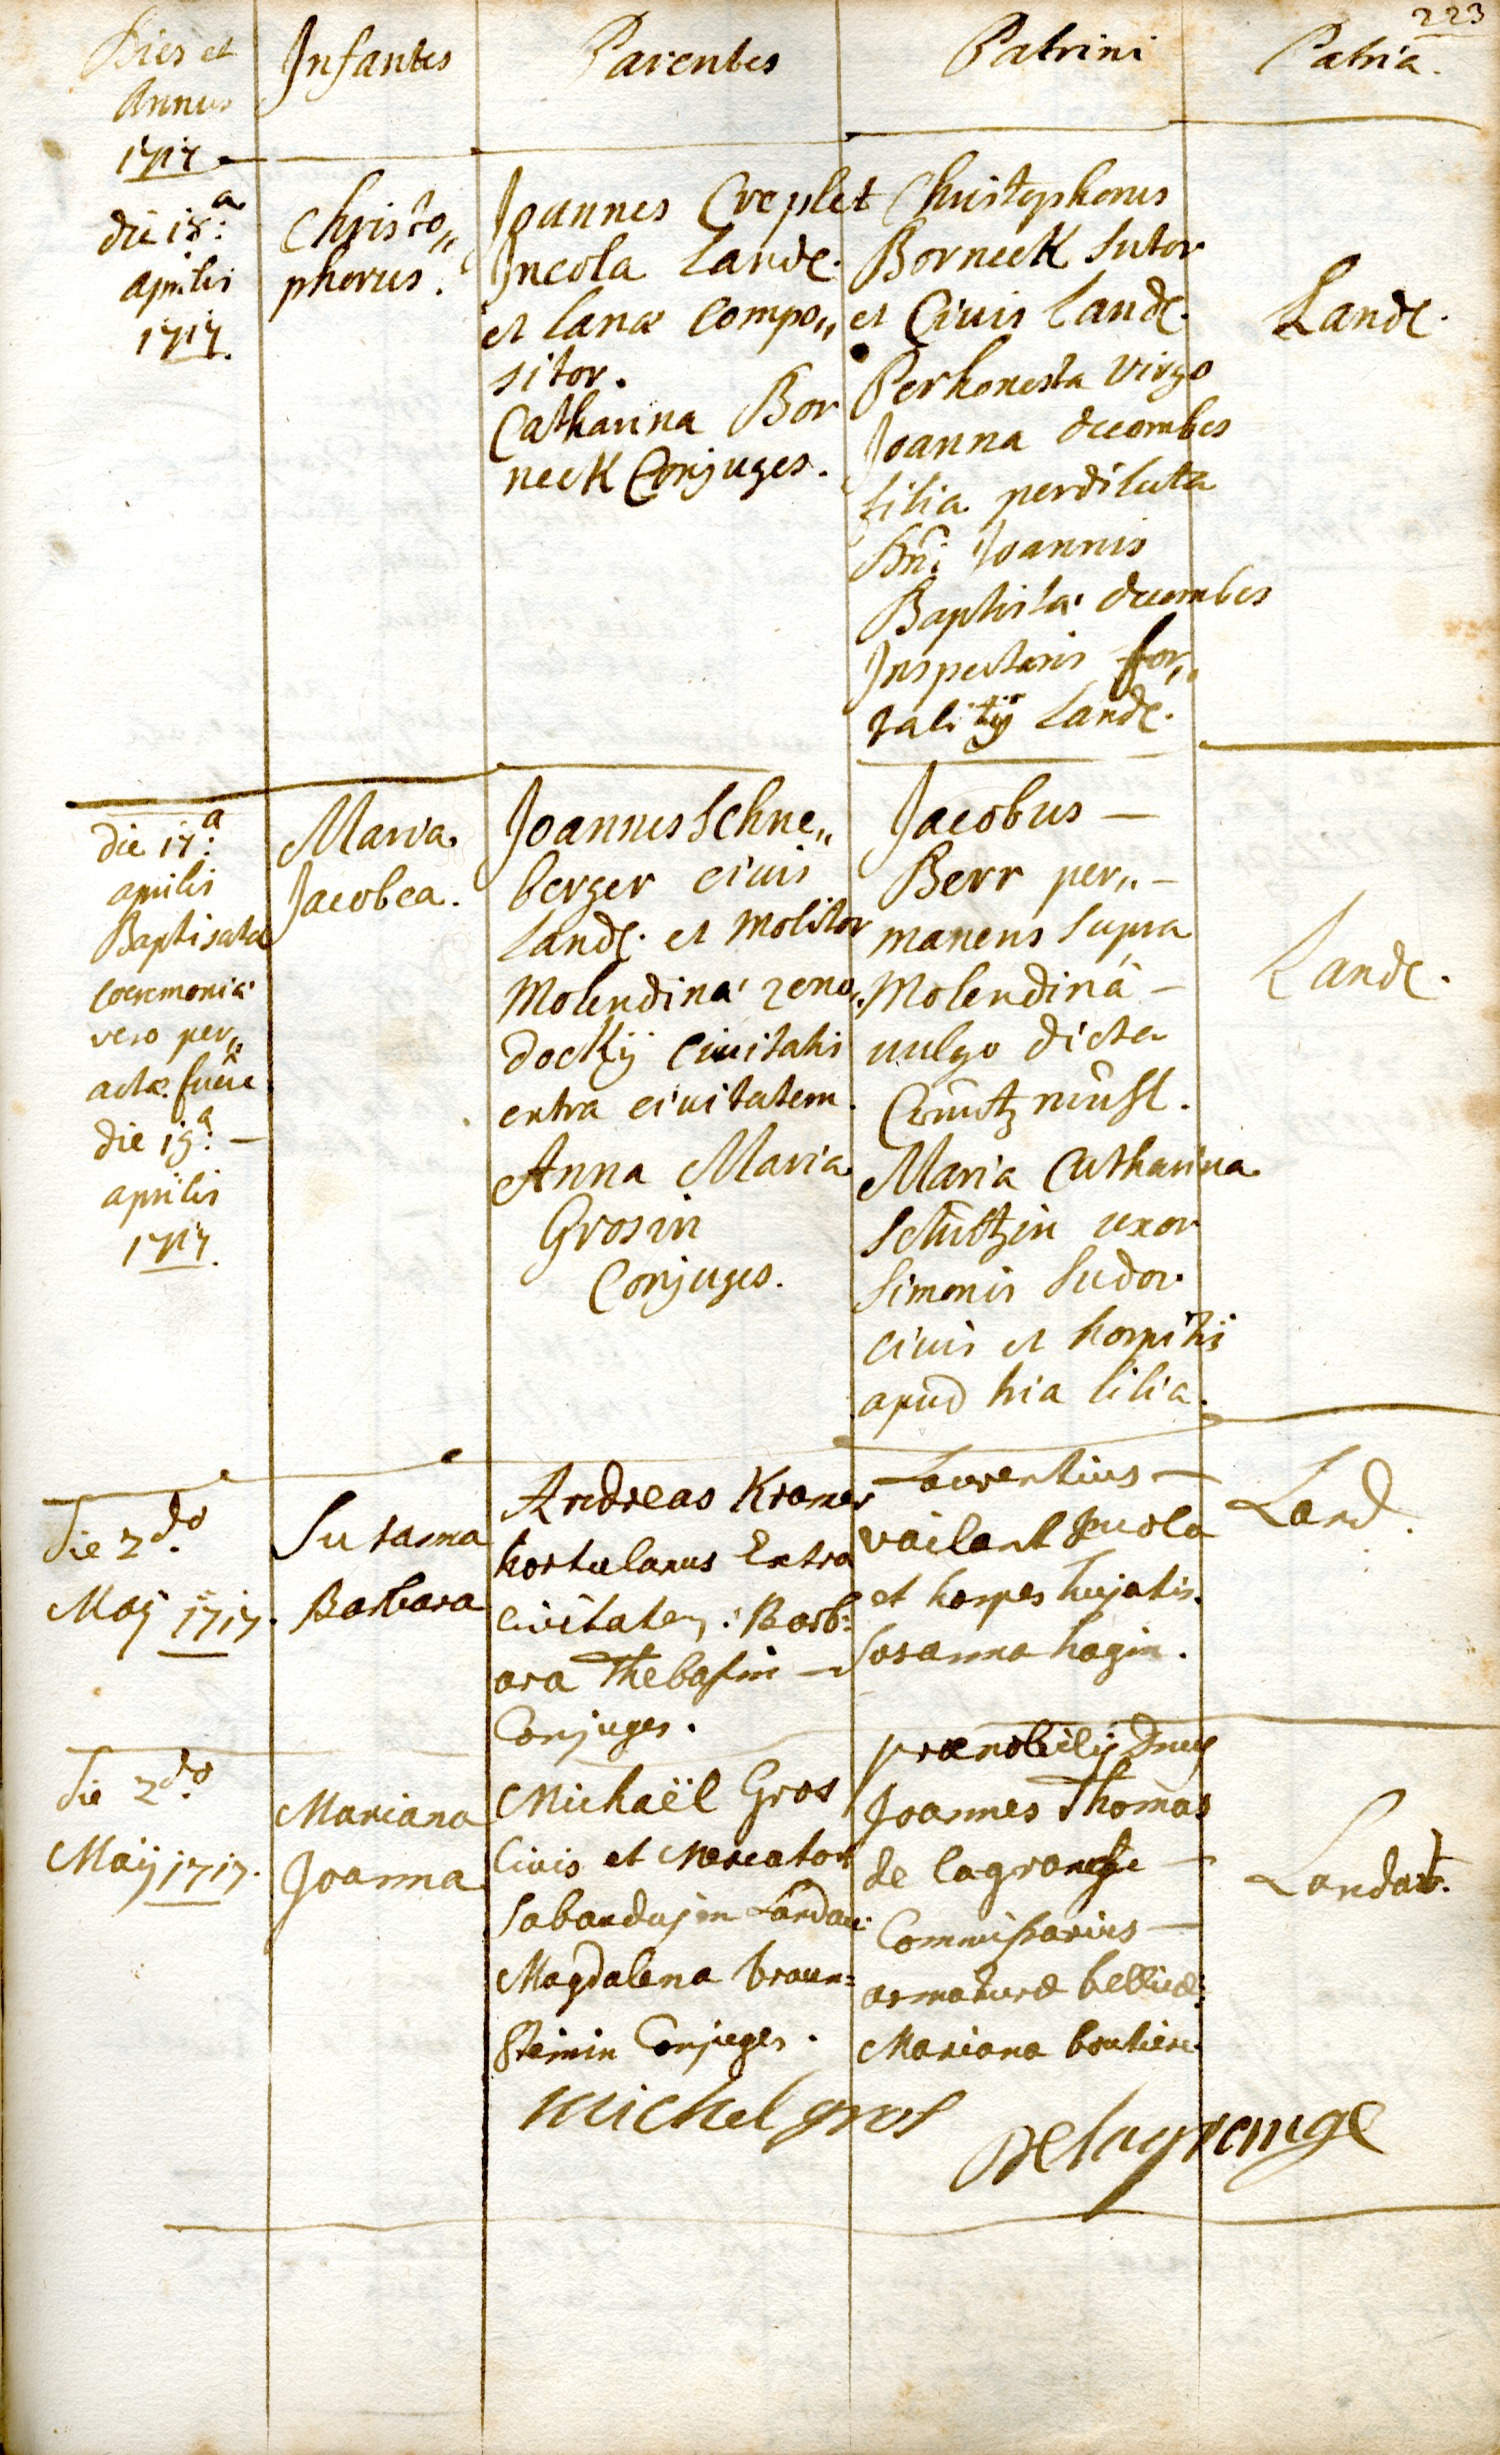 223
Dies et
Annus
1717
Infantes
Parentes
Patrini
Patria.
die 18.a
aprilis
1717.
Christo„
phorus.
Joannes Creplet
Incola Land.
et lanæ compo„
sitor.
Catharina Bor
neck Conjuges.
Christophorus
Borneck sutor
et Civis Land.
Perhonesta virgo
Joanna decombes
filia perdilecta
Dni Joannis
Baptistæ decombes
Inspectoris for„
talitij Land.
Land.
die 17.a
aprilis
Baptisata
Cæremoniæ
vero per„
actæ fuere
die 19.a —
aprilis
1717.
Maria
Jacobea.
Joannes Schne„
berger civis
Land. et Molitor
Molendinæ
civitatis
extra civitatem.
Anna Maria
Grosin
Conjuges.
Jacobus —
Berr per„ —
manens supra
Molendina —
vulgo dicta
Maria Catharina
Schützin uxor
Simonis Sudor
civis et hospitis
apud tria lilia.
Land.
Die 2do
Maÿ 1717.
Susanna
Barbara
Andreas Kramer
hortulanus Extra
Civitatem: Barb:
ara Thebasin —
Conjuges.
Laurentius —
vailant Incola
et hospes hujatis.
Sosanna hagin.
Land.
Die 2do
Maij 1717.
Mariana
Joanna
Michaël Gros
Civis et Mercator
Sabaudus in Landau:
Magdalena braun=
steinin Conjuges.
prænobilis Dnus
Joannes Thomas
de lagrange —
Commissarius —
armaturæ bellicæ:
Mariana boutiere
Landav.
michel gros
Delagrange